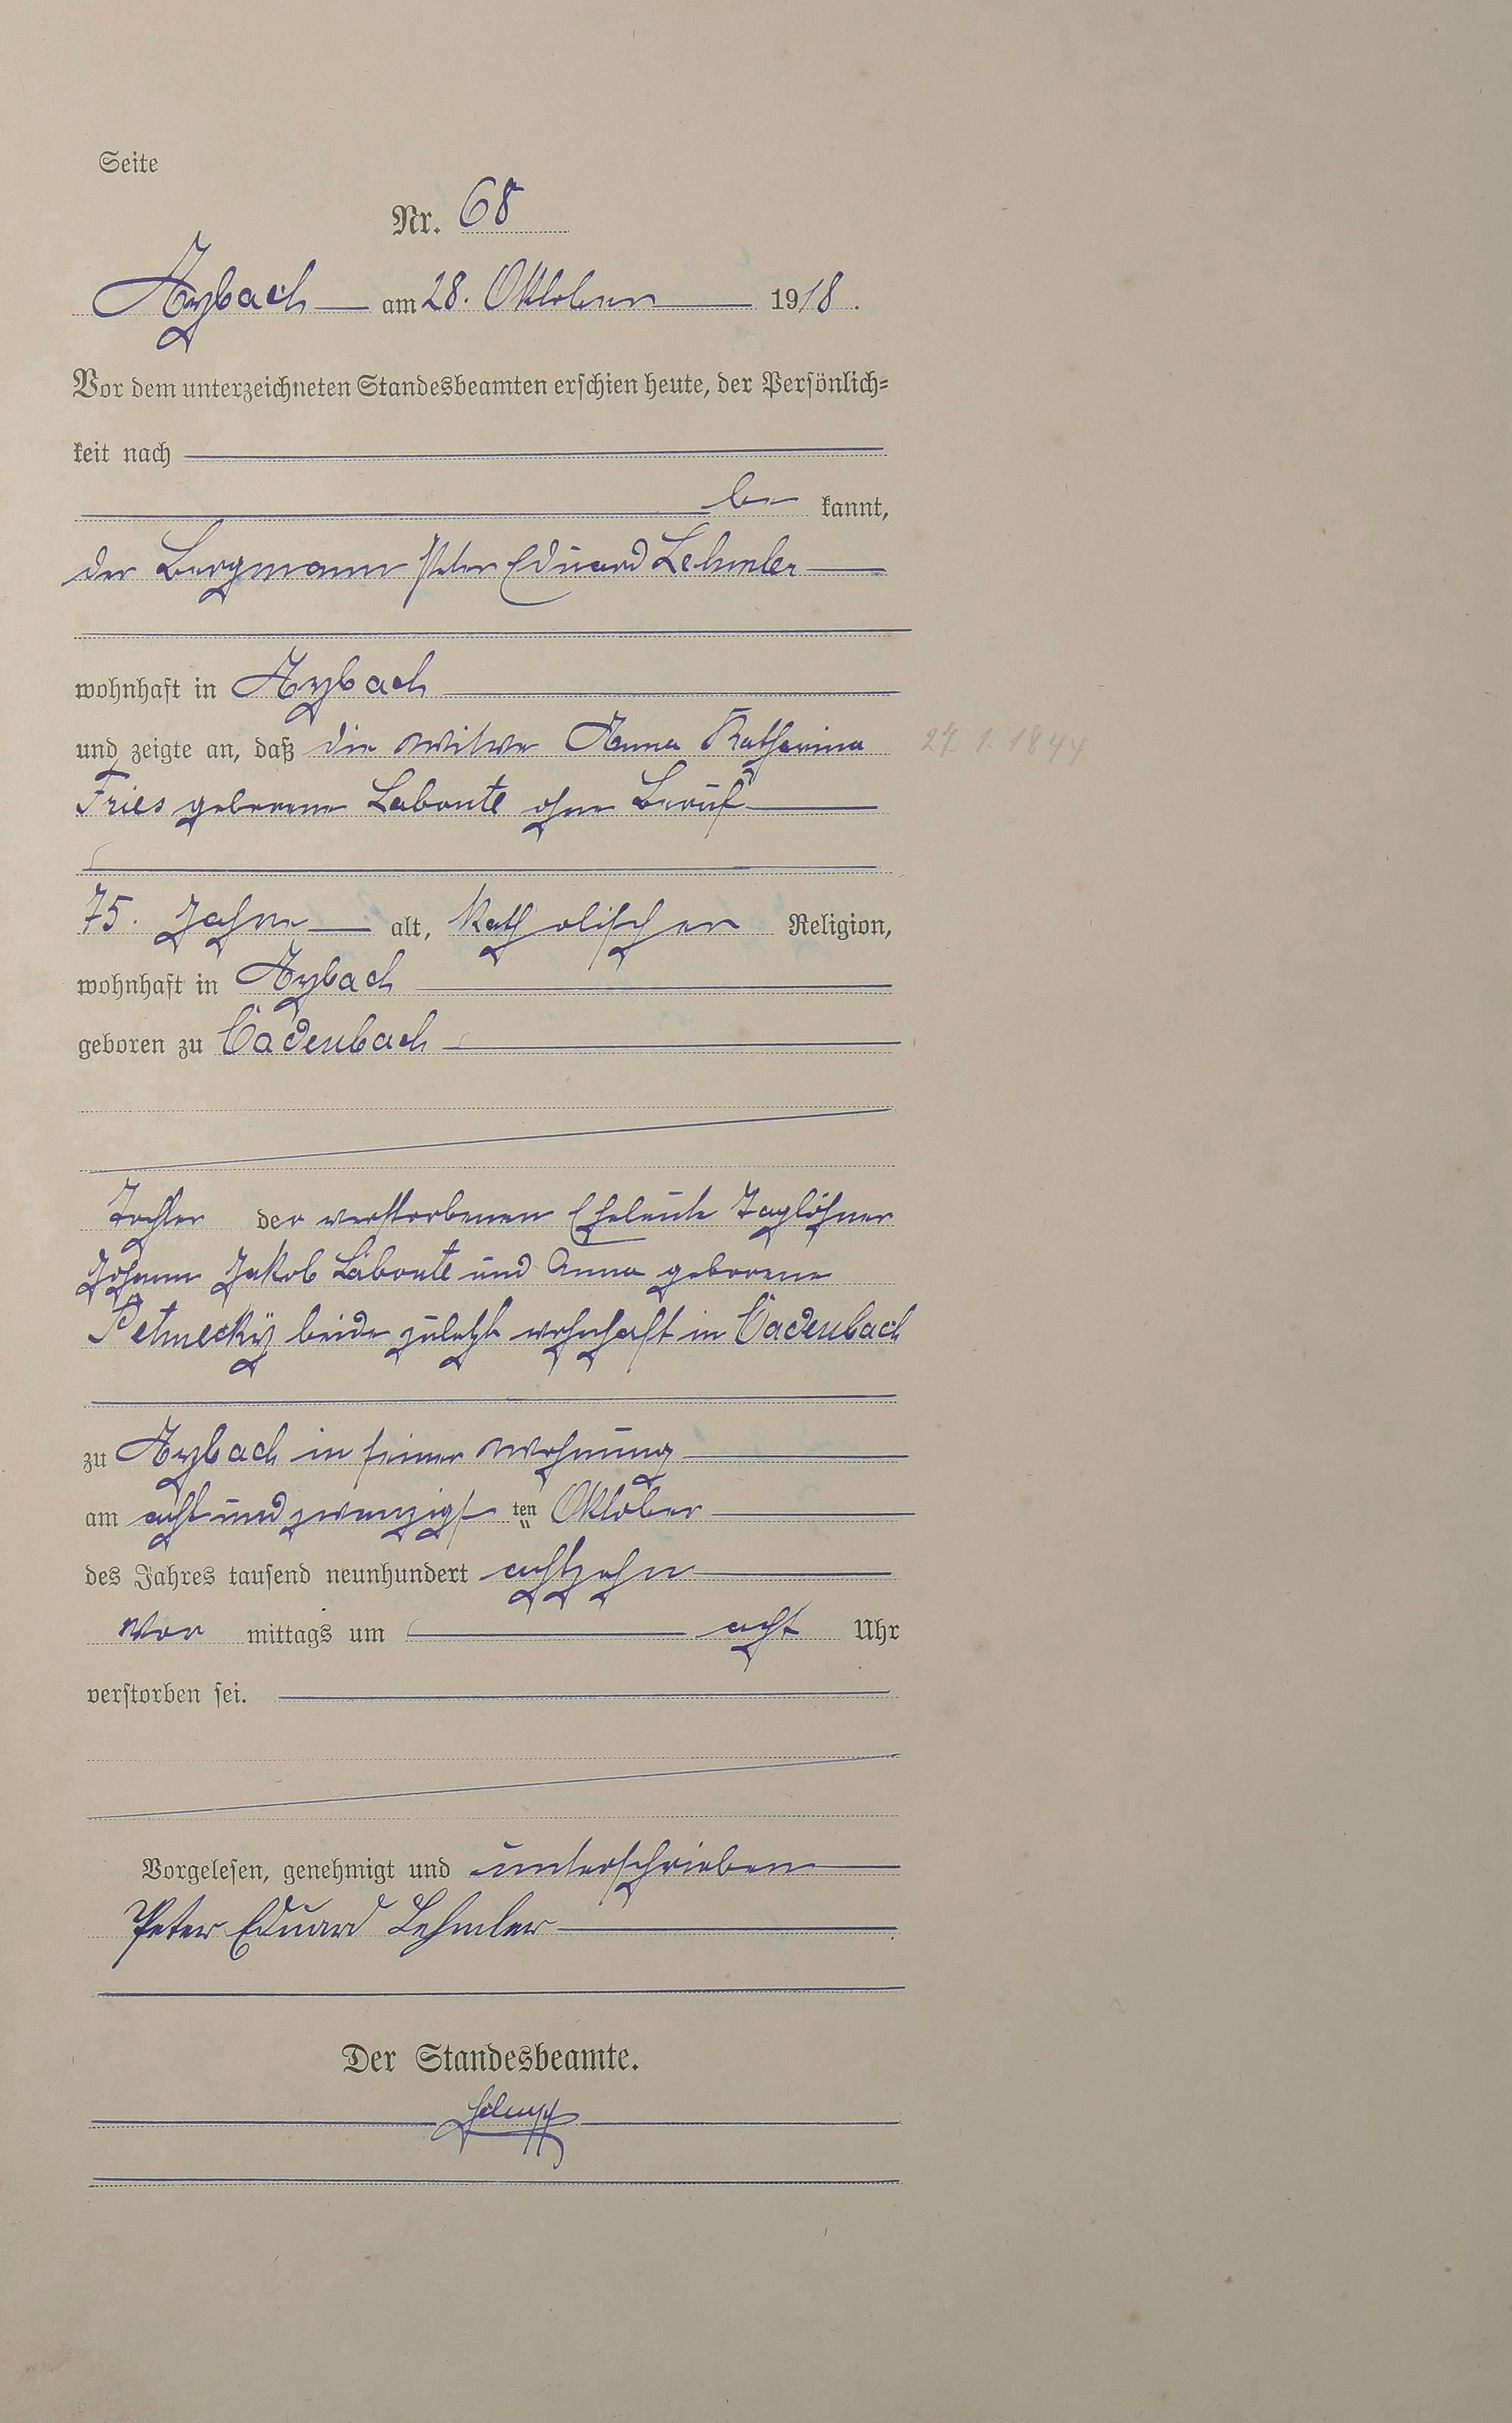 Seite
Nr. 68
Arzbach am 28. Oktober 1918.
Vor dem unterzeichneten Standesbeamten erschien heute, der Persönlich=
keit nach
be kannt,
der Bergmann Peter Eduard Lehmler
wohnhaft in Arzbach
und zeigte an, daß die Witwe Anna Katharina 27. 1. 1844
Fries geborene Laboute ohne Beruf
75. Jahre alt, katholischer Religion,
wohnhaft in Arzbach
geboren zu Cadenbach
Tochter der verstorbenen Eheleute Taglöhner
Johann Jakob Laboute und Anna geborene
beide zuletzt wohnhaft in Cadenbach
zu Arzbach in seiner Wohnung
am acht und zwanzigst ten Oktober
des Jahres tausend neunhundert achtzehn
Vor mittags um acht Uhr
verstorben sei.
Vorgelesen, genehmigt und unterschrieben
Peter Eduard Lehmler
Der Standesbeamte.